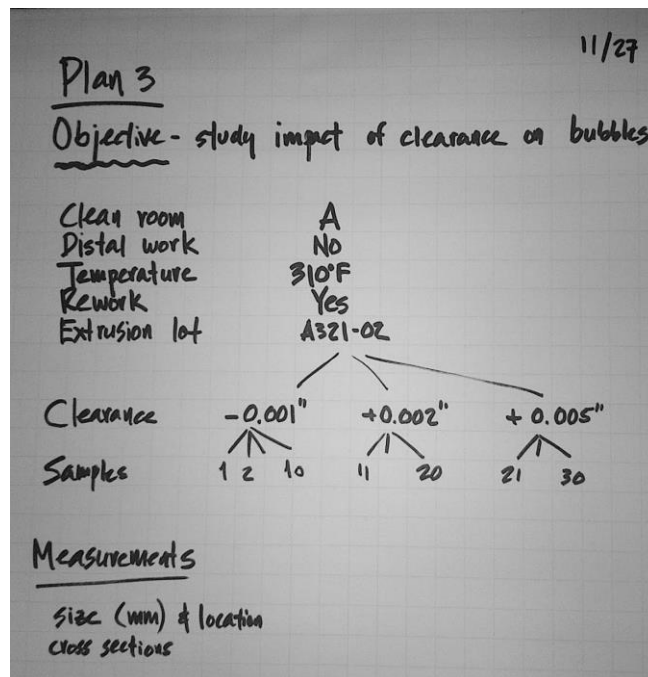 11/27
Plan 3
Objective - study impact of clearance on bubbles
Clean room A
Distal work No
Temperature 310°F
Rework Yes
Extrusion lot A321-02
Clearance -0.001" +0.002" +0.005"
Samples 1 2 10 11 20 21 30
Measurements
size (mm) & location
cross sections